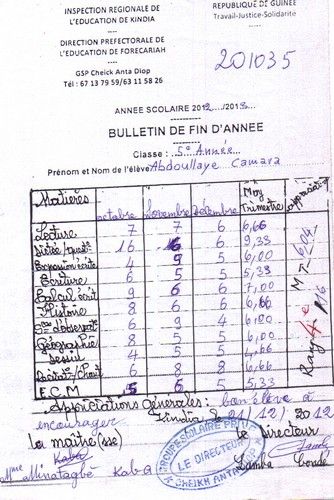 INSPECTION REGIONALE DE
L'EDUCATION DE KINDIA
----
DIRECTION PREFECTORALE DE
L'EDUCATION DE FORECARIAH
----
GSP Cheick Anta Diop
Tél : 67 13 79 59/63 11 58 26
REPUBLIQUE DE GUINEE
Travail-Justice-Solidarité
201035
ANNEE SCOLAIRE 2012./2013.
BULLETIN DE FIN D'ANNEE
Classe : 5e Année
Prénom et Nom de l'élève Abdoullaye Camara
Matières octobre Novembre Décembre Moy Trimestre Appréciation
Lecture 7 7 6 6,66
Dictée/quest° 16 6 6 9,33
Expression écrite 4 9 5 6,00
Ecriture 6 5 5 5,33
Calcul écrit 9 6 6 7,00
Histoire 8 6 6 6,66
Sce d'observat° 6 9 4 6,00
Géographie 8 5 5 6,00
Dessin 4 5 5 4,66
Récitat°/Chant 6 8 6 6,66
E.C.M 5 6 5 5,33
M T = 6,04
Rang 4e /16
Appréciations Générales : bon élève à
encourager
Kindia le 21/12/2012
Le maître(sse)
Le Directeur
Kaba
Mme Minatagbè Kaba
GROUPE SCOLAIRE PRIVE
LE DIRECTEUR
CHEIKH ANTA DIOP
Samba Condé